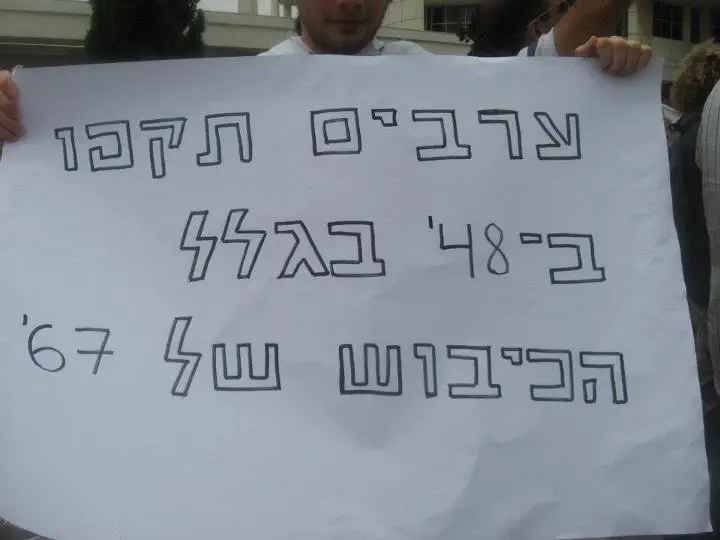 ערבים תקפו
ב-48' בגלל
הכיבוש של 67'